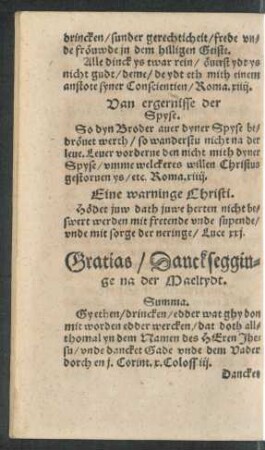 drincken/ sunder gerechticheit/ frede vn⸗
de fröuwde jn dem hilligen Geiste.
Alle dinck ys twar rein/ öuerst ydt ys
nicht gudt/ deme/ de ydt eth mith einem
anstote syner Conscientien/ Roma. xiiij.
Van ergernisse der
Spyse.
So dyn Broder auer dyner Spyse be⸗
dröuet werth/ so wanderstu nicht na der
leue. Leuer vorderue den nicht mith dyner
Spyse/ vmme welckeres willen Christus
gestoruen ys/ etc. Roma. xiiij.
Eine warninge Christi.
Hödet juw dath juwe herten nicht be⸗
swert werden mit fretende vnde supende/
vnde mit sorge der neringe/ Luce xxj.
Gratias/ Danckseggin⸗
ge na der Maeltydt.
Summa.
Gy ethen/ drincken/ edder wat ghy don
mit worden edder wercken/ dat doth all⸗
thomal yn dem Namen des HEren Jhe⸗
su/ vnde dancket Gade vnde dem Vader
dorch en j. Corint. x. Coloss iij.
Dancket